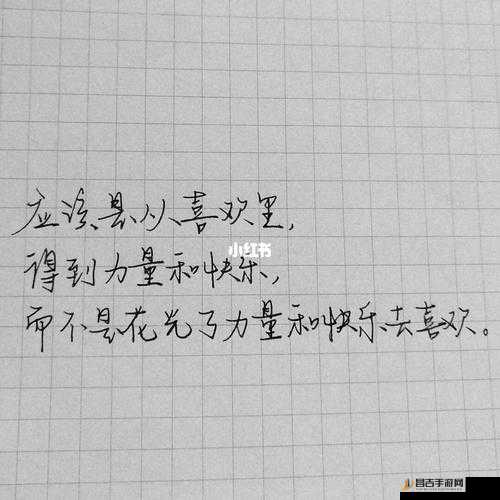 应该是从喜欢里，
小红书
得到力量和快乐，
而不是花光了力量和快乐去喜欢。
昌吉手游网